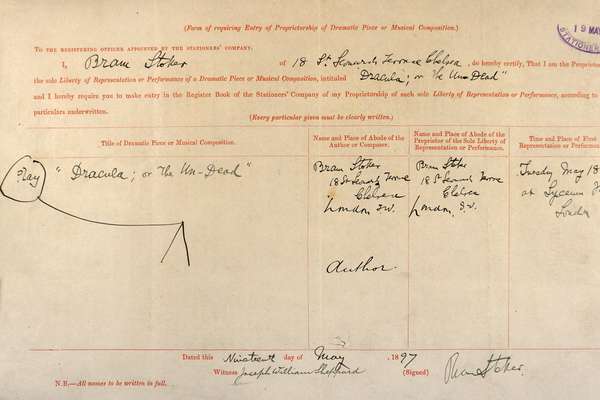 (Form of requiring Entry of Proprietorship of Dramatic Piece or Musical Composition.)
19 MAY
STATIONERS'
TO THE REGISTERING OFFICER APPOINTED BY THE STATIONERS' COMPANY.
I, Bram Stoker of 18 St. Leonards Terrace Chelsea, do hereby certify, That I am the Proprietor
the sole Liberty of Representation or Performance of a Dramatic Piece or Musical Composition, intituled Dracula; or The Un-Dead"
and I hereby require you to make entry in the Register Book of the Stationers' Company of my Proprietorship of such sole Liberty of Representation or Performance, according to
particulars underwritten.
(Every particular given must be clearly written.)
Title of Dramatic Piece or Musical Composition.
Name and Place of Abode of the
Author or Composer.
Name and Place of Abode of the
Proprietor of the Sole Liberty of
Representation or Performance.
Time and Place of First
Representation or Performance.
Play "Dracula; or The Un-Dead"
Bram Stoker
18 St Leonards Terrace
Chelsea
London S.W.
Author.
Bram Stoker
18 St Leonards Terrace
Chelsea
London S.W.
Tuesday May 18
at Lyceum
London
Dated this Nineteenth day of May, 1897
Witness Joseph William Sheppard (Signed) Bram Stoker.
N.B.—All names to be written in full.